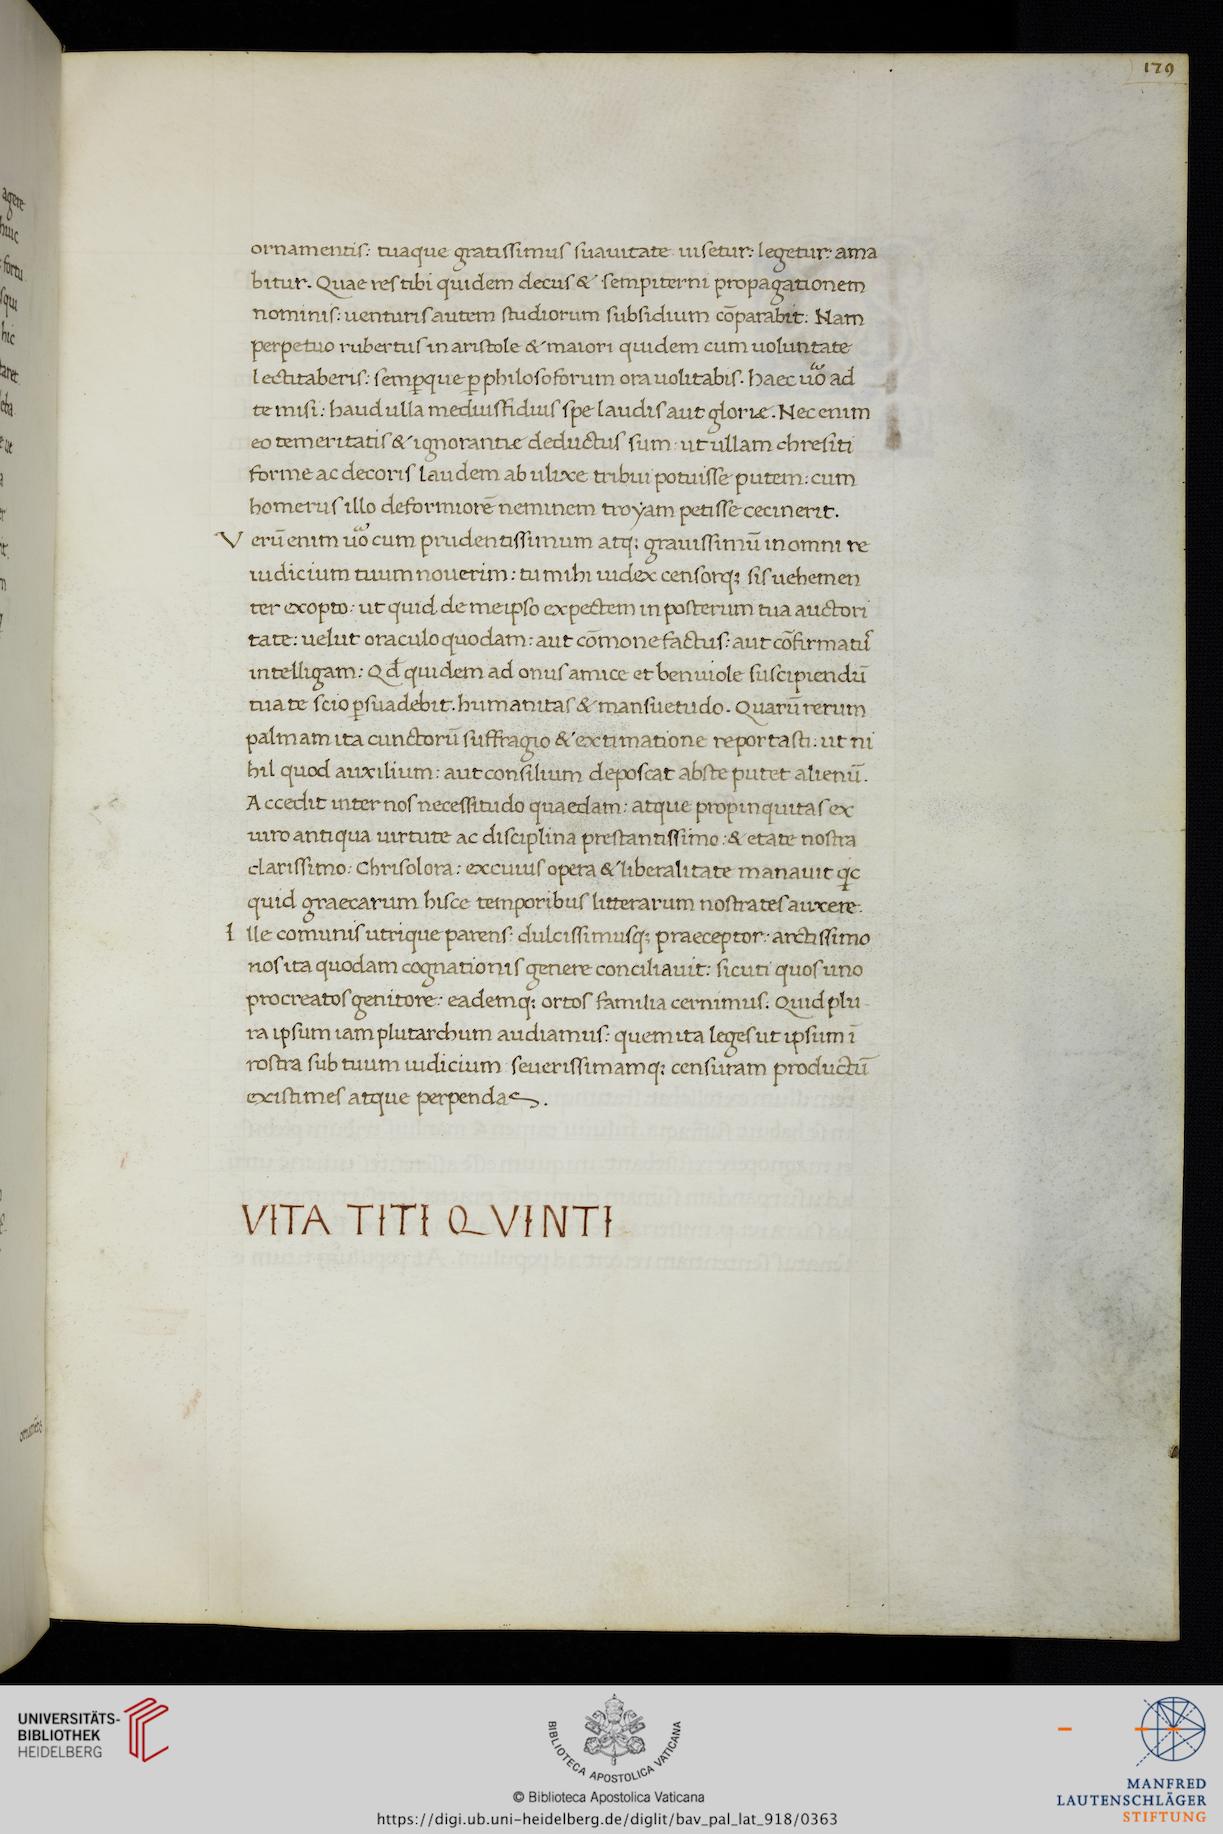 179
ornamentis: tuaque gratissimus suauitate uisetur: legetur: ama
bitur. Quae res tibi quidem decus & sempiterni propagationem
nominis: uenturis autem studiorum subsidium cōparabit: Nam
perpetuo rubertus in aristole & maiori quidem cum uoluntate
lectitaberis: semꝑque ꝑ philosoforum ora uolitabis. haec uo ad
te misi: haud ulla mediusfidius spe laudis aut glorię. Nec enim
eo temeritatis & ignorantię deductus sum: ut ullam chresiti
forme ac decoris laudem ab ulixe tribui potuisse putem: cum
homerus illo deformiorē neminem troyam petisse cecinerit.
Verū enim uo cum prudentissimum atq; grauissimū in omni re
iudicium tuum nouerim: tu mihi iudex censorq; sis uehemen
ter exopto: ut quid de meipso expectem in posterum tua auctori
tate: uelut oraculo quodam: aut cōmonefactus: aut cōfirmatu᷒
intelligam: Qđ quidem ad onus amice et beniuole suscipiendū
tua te scio ꝑsuadebit. humanitas & mansuetudo. Quarū rerum
palmam ita cunctorū suffragio & extimatione reportasti: ut ni
hil quod auxilium: aut consilium deposcat abste putet alienū.
Accedit inter nos necessitudo quaedam: atque propinquitas ex
uiro antiqua uirtute ac disciplina prestantissimo: & etate nostra
clarissimo: Chrisolora: ex cuius opera & liberalitate manauit qc
quid graecarum hisce temporibus litterarum nostrates auxere:
Ille comunis utrique parens: dulcissimusq; praeceptor: arctissimo
nos ita quodam cognationis genere conciliauit: sicuti quos uno
procreatos genitore: eademq; ortos familia cernimus: Quid plu
ra ipsum iam plutarchum audiamus: quem ita leges ut ipsum ī
rostra sub tuum iudicium seuerissimamq; censuram productū
existimes atque perpendas.
VITA TITI QVINTI
agere
huic
fortu
squi
hic
UNIVERSITÄTS-
BIBLIOTHEK
HEIDELBERG
BIBLIOTECA APOSTOLICA VATICANA
© Biblioteca Apostolica Vaticana
https://digi.ub.uni-heidelberg.de/diglit/bav_pal_lat_918/0363
MANFRED
LAUTENSCHLÄGER
STIFTUNG